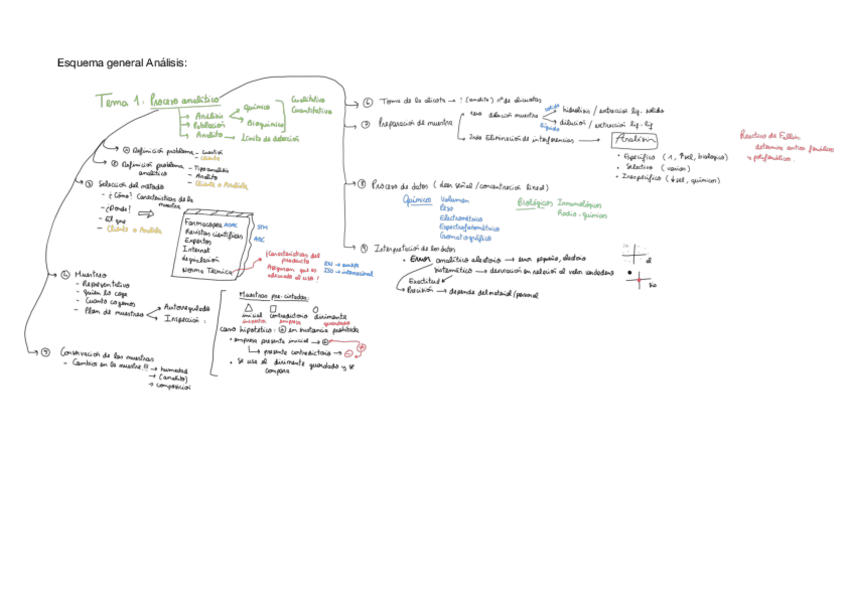 Esquema general Análisis:
Tema 1. Proceso analítico
Análisis
Químico
Bioquímico
Cualitativo
Cuantitativo
Población
Analito → límite de detección
① Definición problema - cuestión
- Cliente
② Definición problema analítico
- Tipo análisis
- Analito
- Cliente o Analista
③ Selección del método
- ¿Cómo? Características de la muestra
- ¿Donde?
- El que
- Cliente o Analista
Farmacopea AOAC
Revistas científicas
Expertos
Internet
legislación
Norma Técnica
Características del producto
Aseguran que es adecuado al uso!
EN → europa
ISO → internacional
④ Muestreo
- Representativo
- Quien lo coge
- Cuanto cogemos
- Plan de muestreo
Autorregulado
Inspección:
Muestras pre-cintadas:
inicial contradictorio dirimente
inspector empresa guardado
caso hipotético: ⊕ en sustancia prohibida
• empresa presente inicial → ⊕
↳ presente contradictorio → ⊖
• Se usa el dirimente guardado y se compara
⑤ Conservación de las muestras
- Cambios en la muestra!!! → humedad
→ (analito)
→ composición
⑥ Toma de la alícota → ! (analito) nº de alicuotas
⑦ Preparación de muestra
disolución muestra
sólido
hidrólisis / extracción liq. sólido
líquido
dilución / extracción liq-liq
Eliminación de interferencias → Análisis
• Específico (1, ↑sel, biológico)
• Selectivo (varios)
• Inespecífico (↓sel, químicos)
Reactivo de Felin
determina entre fenólicos
y polifenólicos.
⑧ Proceso de datos (dan señal / concentración lineal)
Químicos
Volumen
Peso
Electrométrico
Espectrofotométrico
Cromatográfico
Biológicos
Inmunológicos
Radio-químicos
⑨ Interpretación de los datos
• Error analítico aleatorio → error pequeño, aleatorio
sistemático → desviación en relación al valor verdadero
Exactitud
Precisión → depende del material/personal